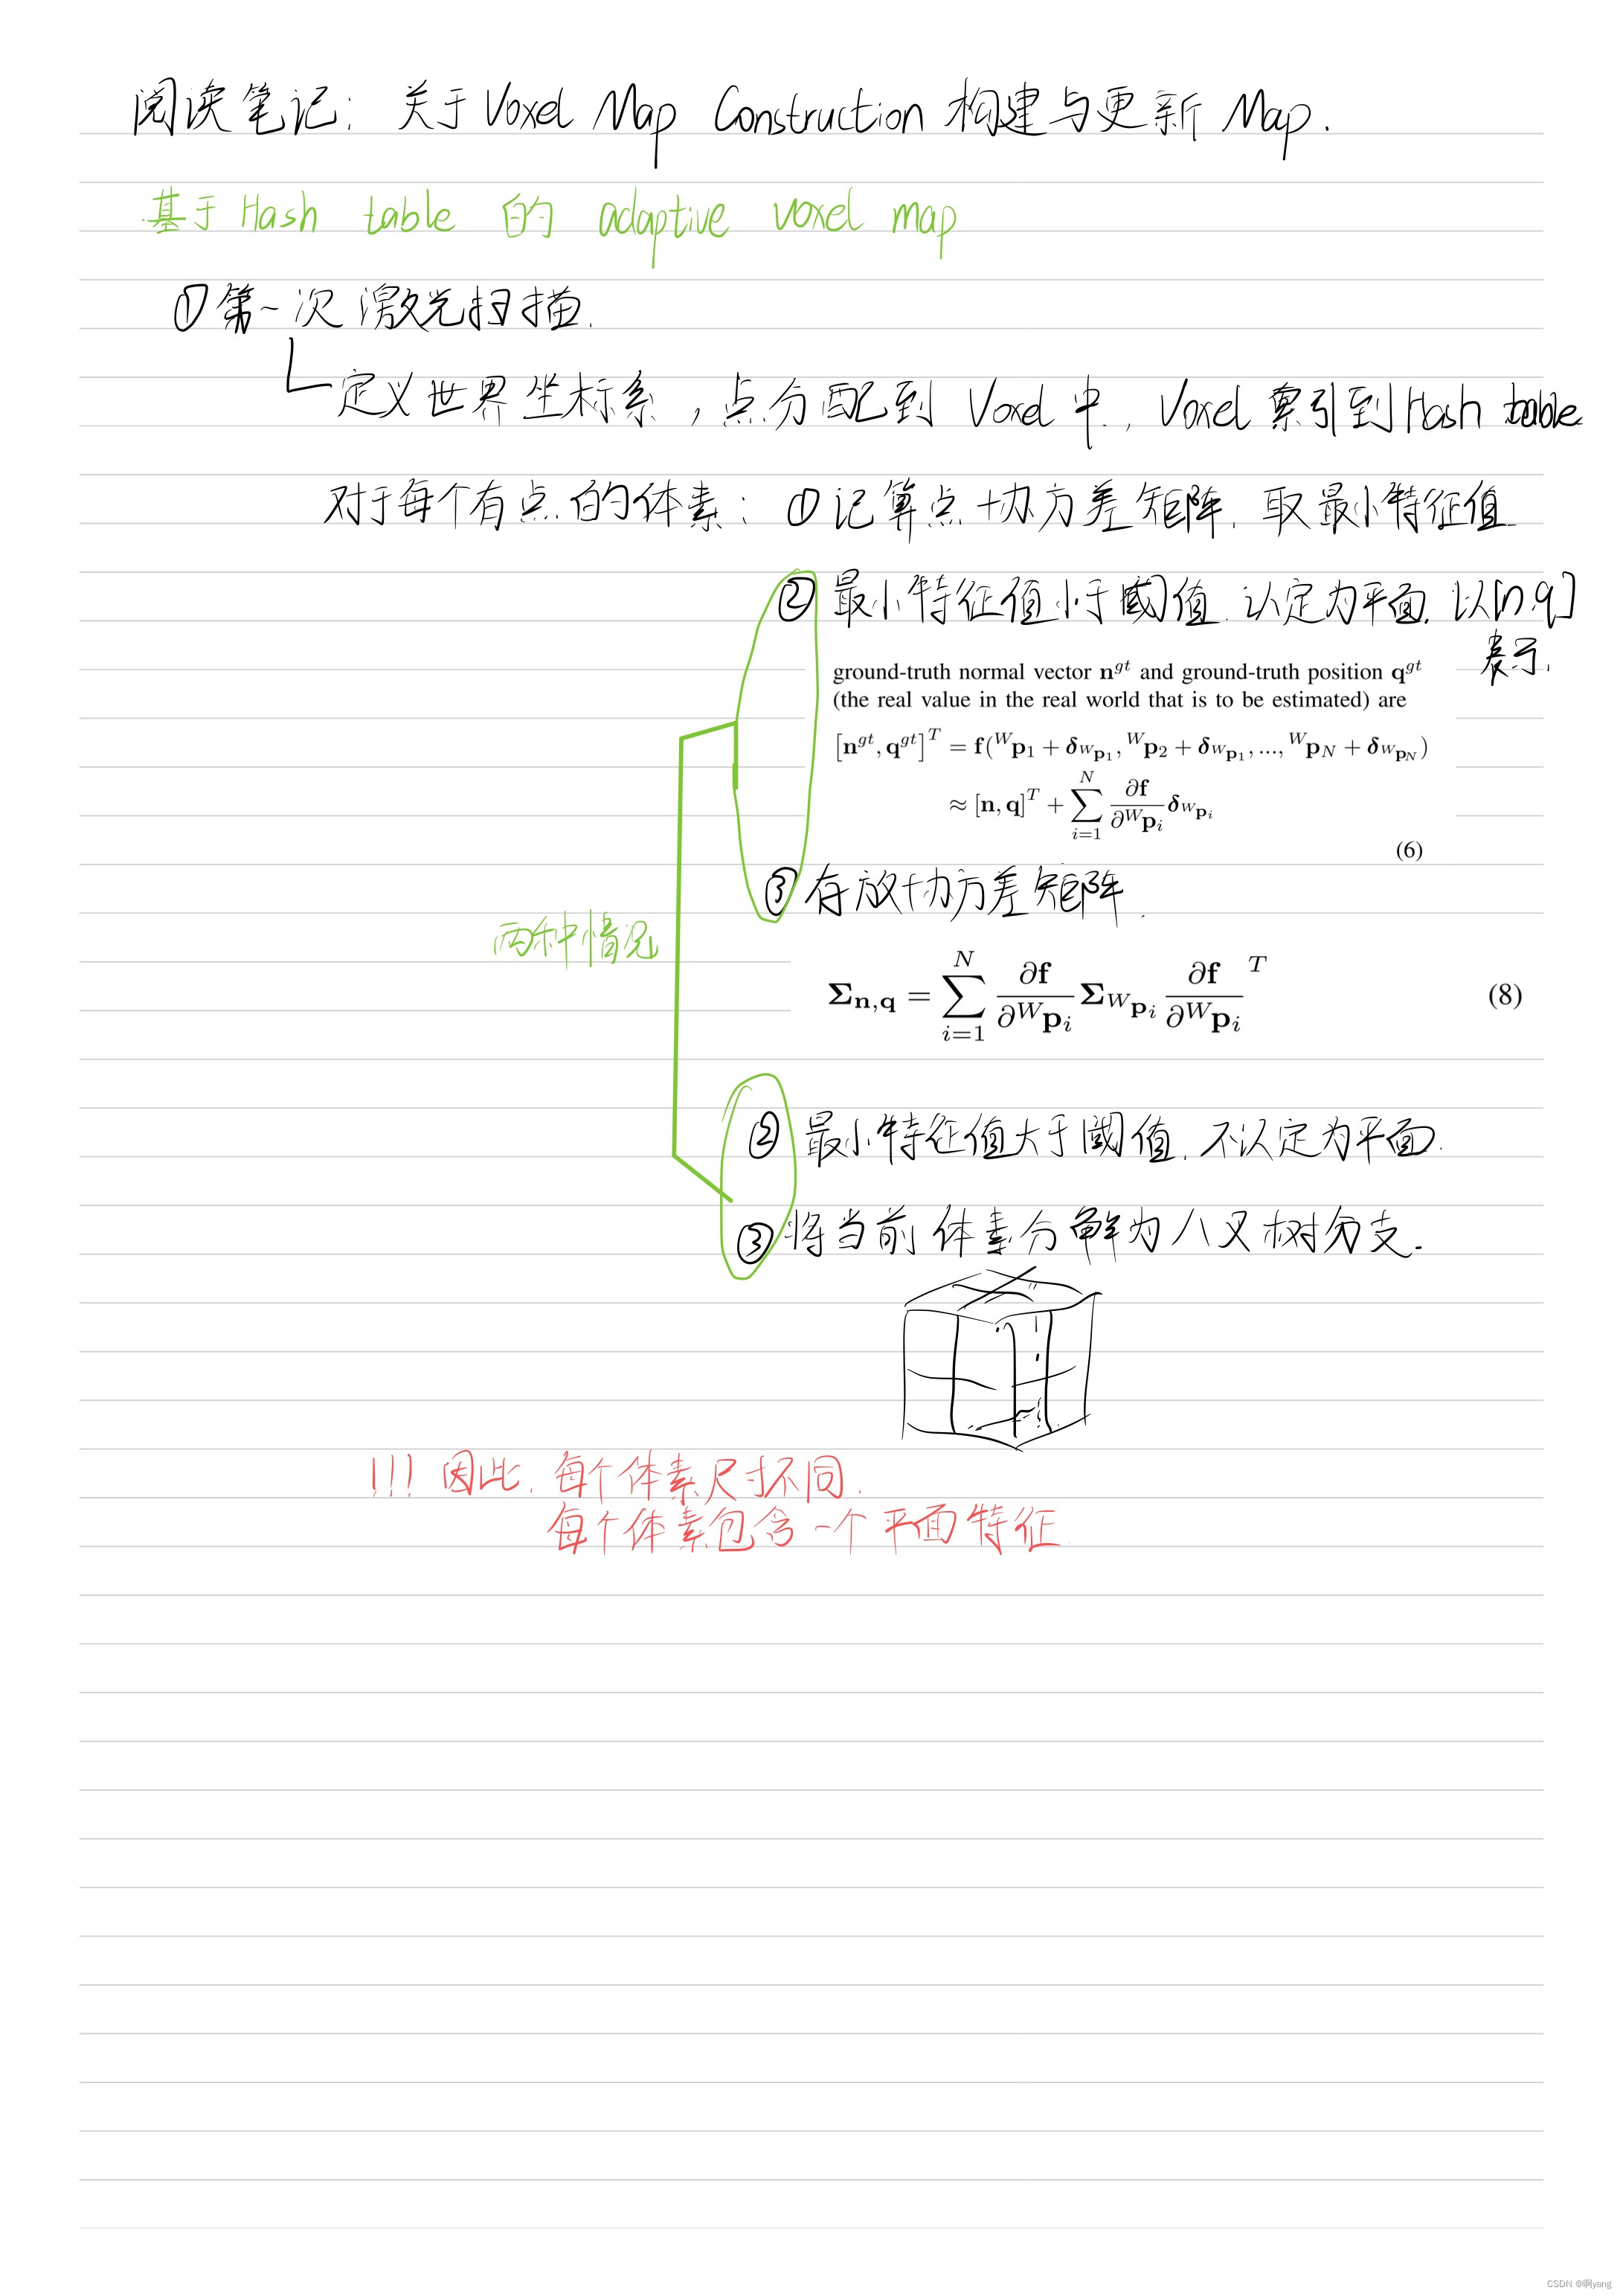 阅读笔记: 关于Voxel Map Construction 构建与更新 Map.
基于Hash table 的 adaptive voxel map
①第一次激光扫描.
定义世界坐标系, 点分配到 Voxel 中., Voxel 索引到Hash table
对于每个有点的体素: ①记算点协方差矩阵. 取最小特征值
②最小特征值小于阈值. 认定为平面. 以[n,q]
表示.
ground-truth normal vector n^{gt} and ground-truth position q^{gt}
(the real value in the real world that is to be estimated) are
[n^{gt}, q^{gt}]^T = f(^Wp_1 + δ_{^Wp_1}, ^Wp_2 + δ_{^Wp_1}, ..., ^Wp_N + δ_{^Wp_N})
≈ [n, q]^T + \sum_{i=1}^{N} \frac{∂f}{∂^Wp_i} δ_{^Wp_i}
(6)
③存放协方差矩阵.
两种情况
Σ_{n,q} = \sum_{i=1}^{N} \frac{∂f}{∂^Wp_i} Σ_{^Wp_i} \frac{∂f}{∂^Wp_i}^T (8)
②最小特征值大于阈值. 不认定为平面.
③将当前体素分解为八叉树分支.
!!! 因此. 每个体素尺寸不同.
每个体素包含一个平面特征
CSDN @啊yang